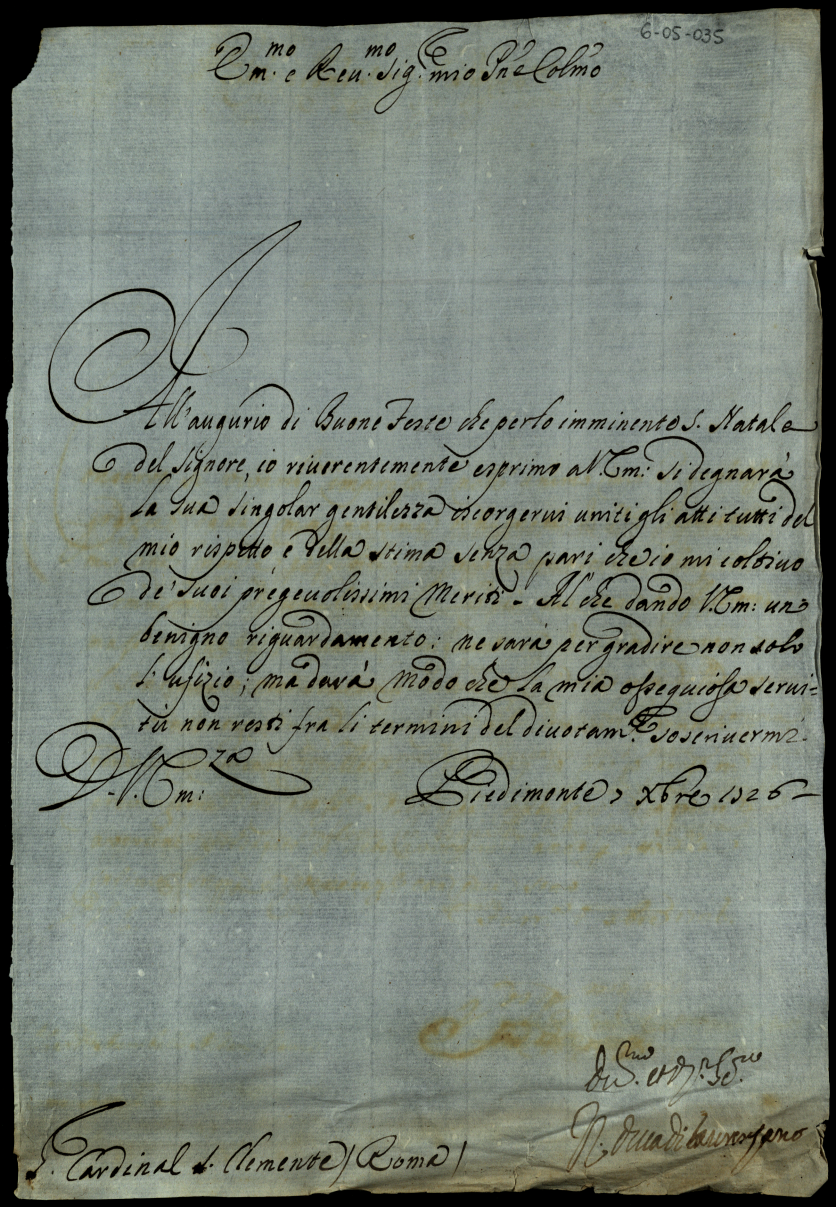 6-05-035
Em.mo e Reu.mo Sig.re mio P'ne Colmo
All'augurio di Buone Feste che per lo imminente S. Natale
del Signore, io riuerentemente esprimo a V. Em: si degnarà
la sua singolar gentilezza iscorgerui uniti gli atti tutti del
mio rispetto e della stima senza pari che io mi coltiuo
de' suoi pregeuolissimi Meriti - Al che dando V. Em: un
benigno riguardamento: ne sarà per gradire non solo
l'ufizio; ma darà modo che la mia ossequiosa serui=
tù non resti fra li termini del diuotam.te soscriuermi.
D. V. Em:za Piedimonte 7 Xbre 1726
N. Duca di Laurenzano
S. Cardinal S. Clemente / Roma /